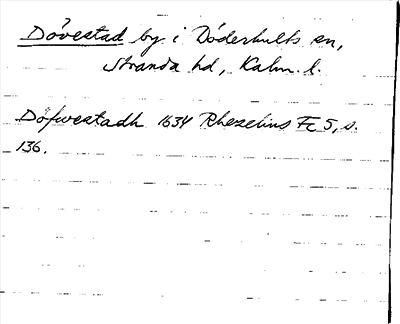 Dövestad by i Döderhults sn,
Stranda hd, Kalm. l.
Döfwestadh 1634 Rhezelius Fc 5, s.
136.